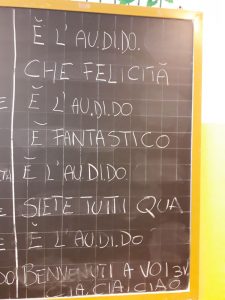 È L'AU.DI.DO.
CHE FELICITÀ
È L'AU.DI.DO
È FANTASTICO
È L'AU.DI.DO.
SIETE TUTTI QUA
È L'AU.DI.DO
BENVENUTI A VOI 3V
CIA, CIA, CIAO